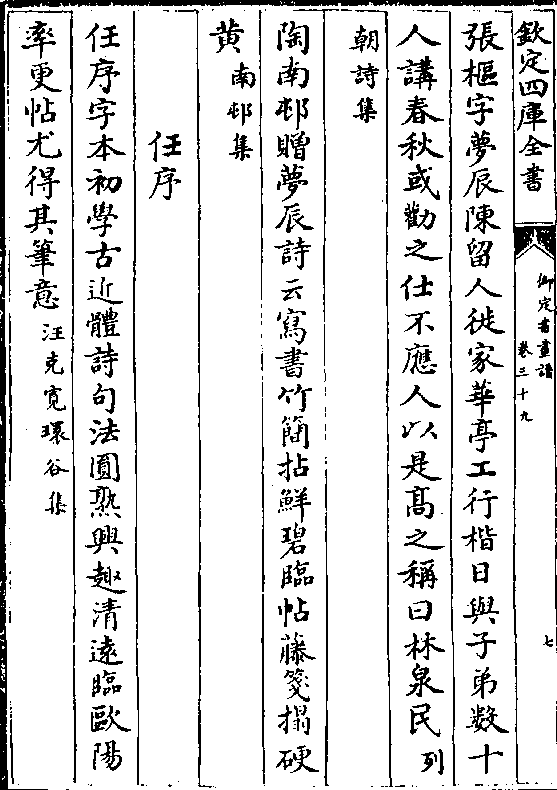 欽定四庫全書
御定書畫譜
卷三十九
七
張樞字夢辰陳留人徙家華亭工行楷日與子弟数十
人講春秋或勸之仕不應人以是髙之稱曰林泉民列
朝詩集
陶南邨贈夢辰詩云寫書竹簡拈鮮碧臨帖藤箋搨硬
黄南邨集
任序
任序字本初學古近體詩句法圓熟興趣清遠臨歐陽
率更帖尤得其筆意汪克寛環谷集